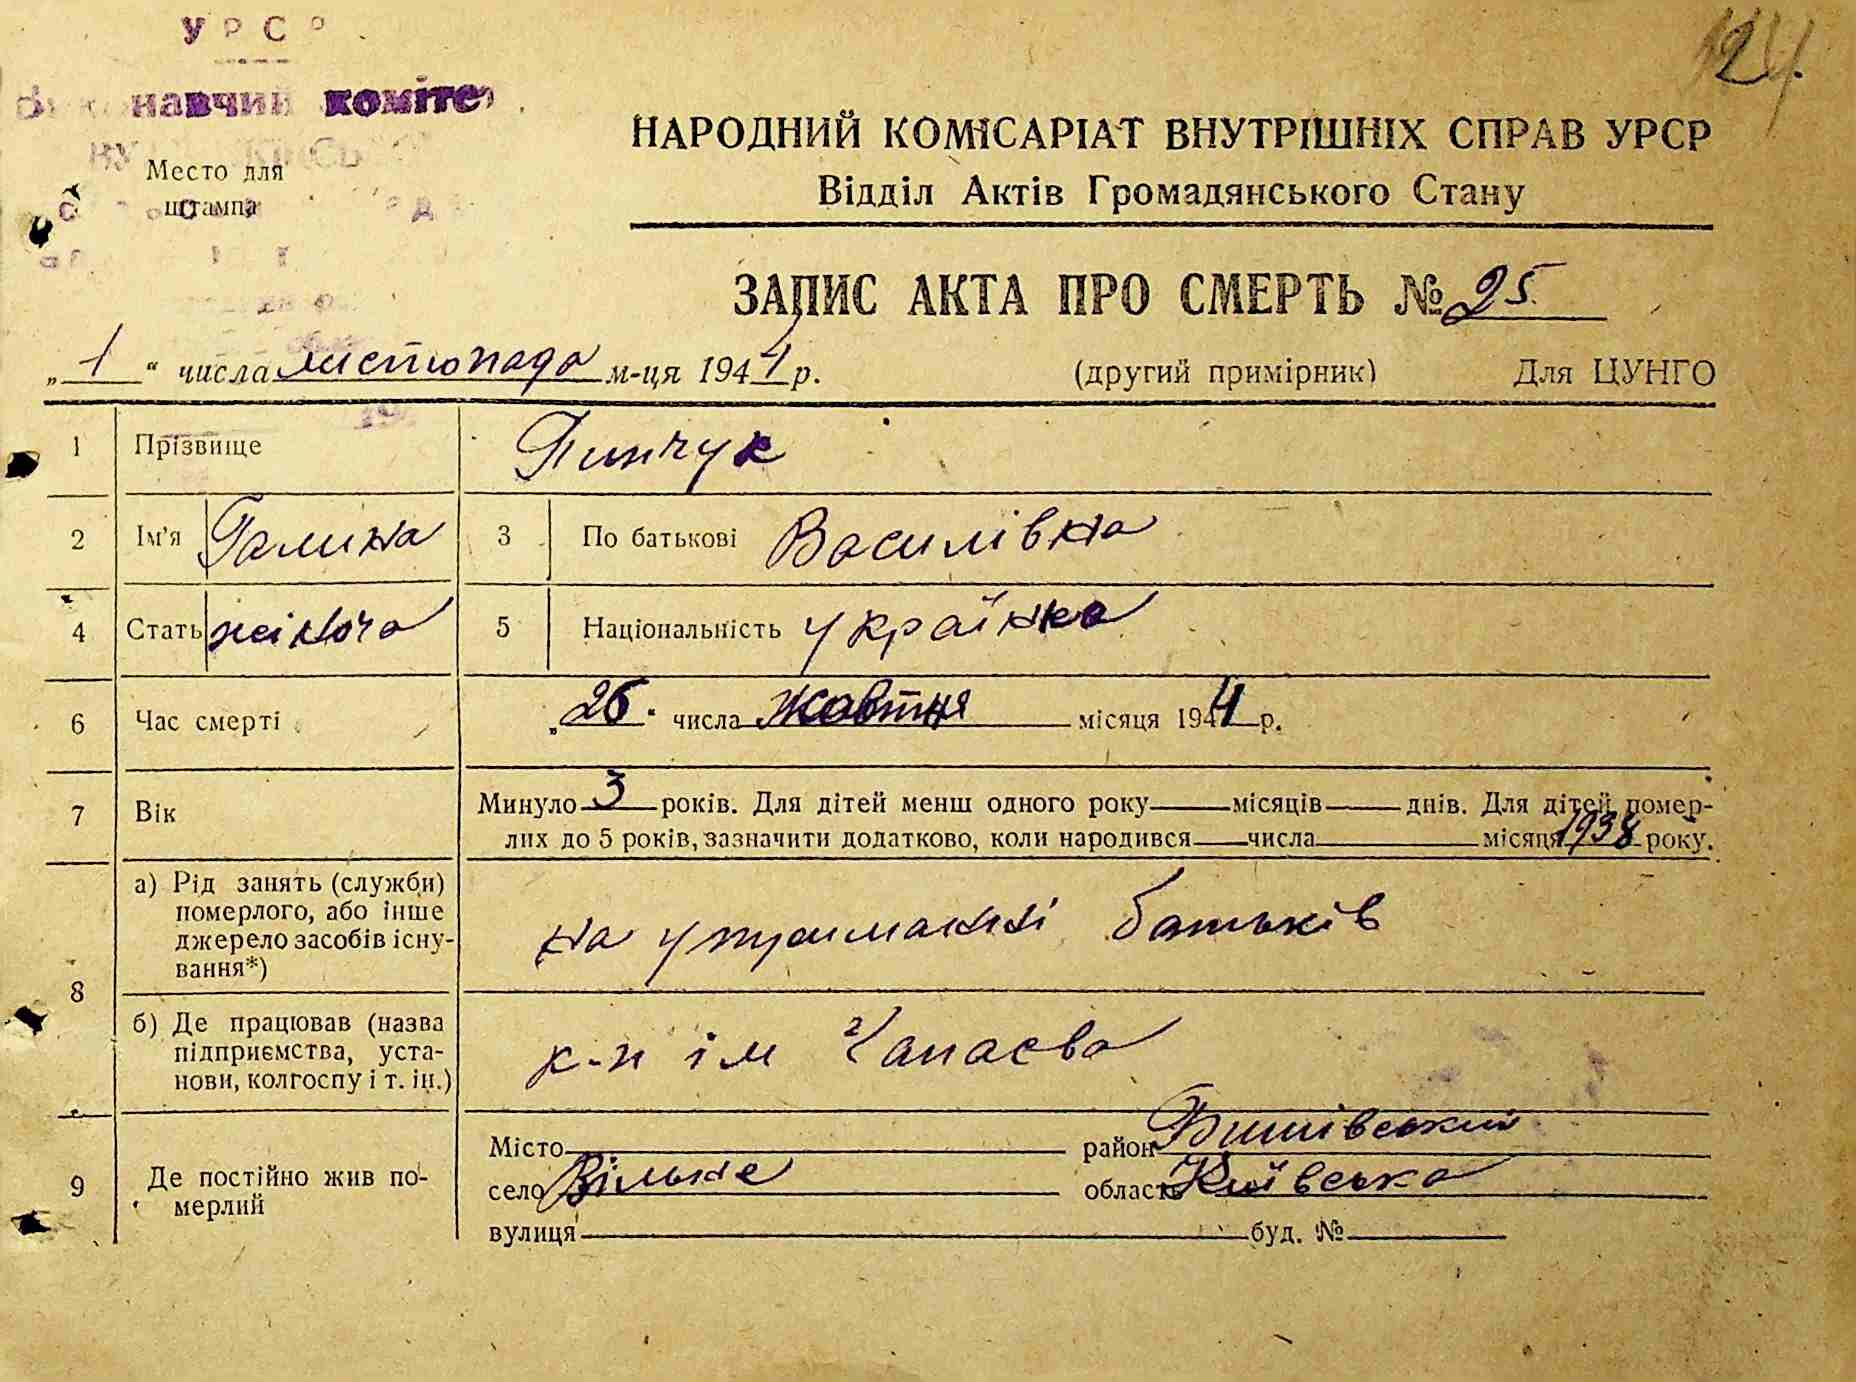 УРСР
Виконавчий комітет
Место для
штампа
124.
НАРОДНИЙ КОМІСАРІАТ ВНУТРІШНІХ СПРАВ УРСР
Відділ Актів Громадянського Стану
ЗАПИС АКТА ПРО СМЕРТЬ № 25
„1“ числа листопада м-ця 1944 р. (другий примірник) Для ЦУНГО
1 Прізвище Пинчук
2 Ім'я Галина 3 По батькові Василівна
4 Стать жіноча 5 Національність українка
6 Час смерті „26“ числа жовтня місяця 1944 р.
7 Вік Минуло 3 років. Для дітей менш одного року місяців днів. Для дітей помер-
лих до 5 років, зазначити додатково, коли народився числа місяця 1938 року.
8 а) Рід занять (служби)
померлого, або інше
джерело засобів існу-
вання*)
на утриманні батьків
б) Де працював (назва
підприємства, уста-
нови, колгоспу і т. ін.)
к-п ім Чапаєва
9 Де постійно жив по-
мерлий
Місто район Бишівський
село Вільне область Київська
вулиця буд. №